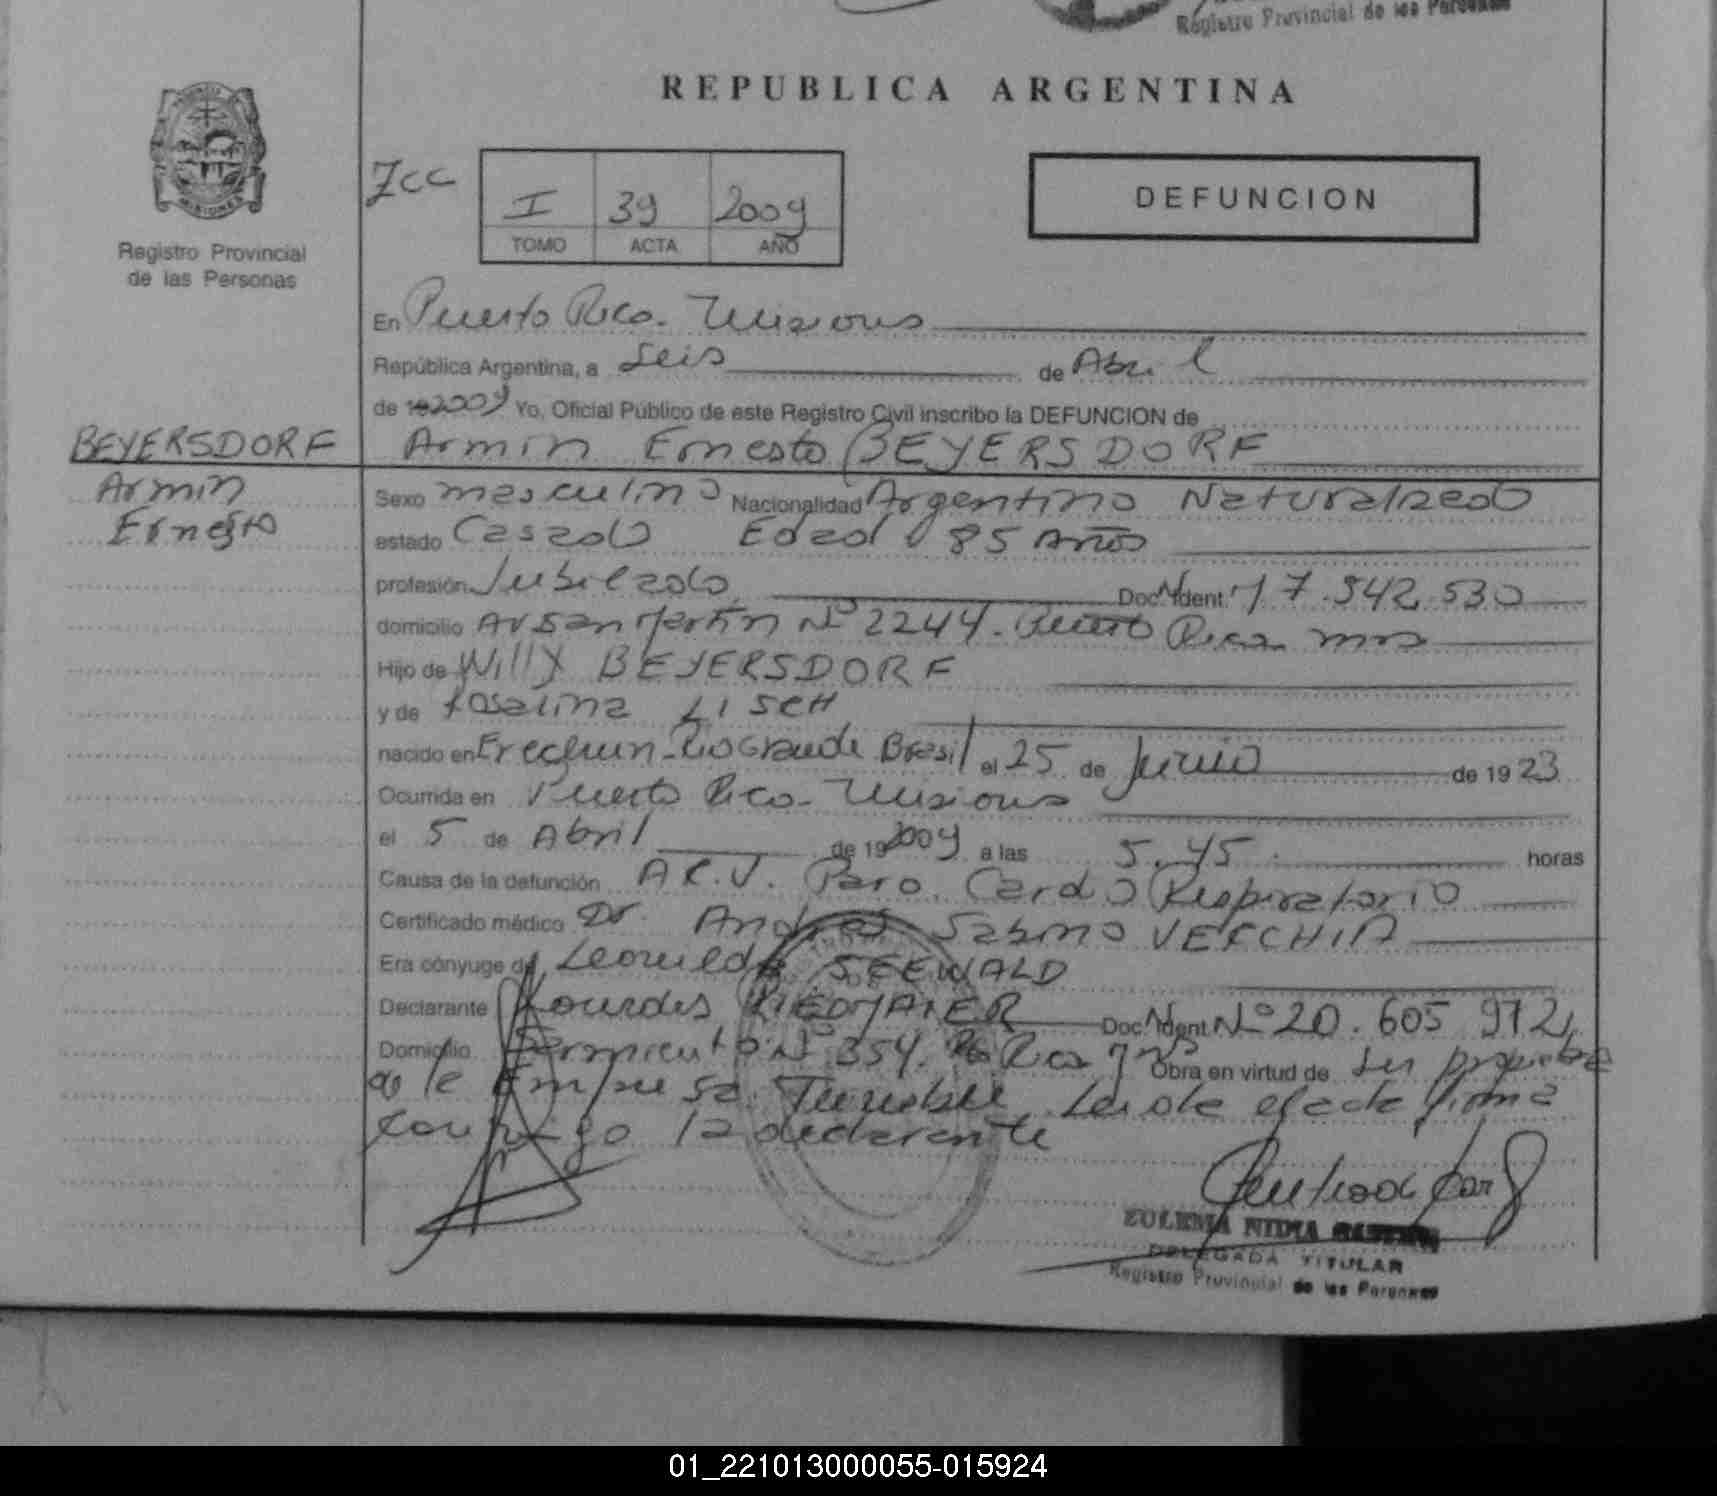 Registro Provincial de las Personas
REPUBLICA ARGENTINA
I 39 2009
TOMO ACTA AÑO
DEFUNCION
Registro Provincial
de las Personas
MISIONES
En Puerto Rico. Misiones
República Argentina, a Seis de Abril
de 2009 Yo, Oficial Público de este Registro Civil inscribo la DEFUNCION de
BEYERSDORF
Armin Ernesto BEYERSDORF
Armin
Ernesto
Sexo masculino Nacionalidad Argentino Naturalizado
estado Casado Edad 85 Años
profesión Jubilado Doc. Ident. 17.542.530
domicilio Av San Martin Nº 2244. Puerto Rico mns
Hijo de Willy BEYERSDORF
y de Rosalina LISCH
nacido en Erechun Rio Grande Brasil el 25 de Junio de 1923
Ocurrida en Puerto Rico. Misiones
el 5 de Abril de 2009 a las 5.45. horas
Causa de la defunción Paro. Cardo Respiratorio
Certificado médico Dr. Andres Sabino VERCHIA
Era cónyuge de Leonilda SEEWALD
Declarante Lourdes Doc. Ident. Nº 20.605.972
Domicilio Sarmiento Nº 354. Pto Rico mns Obra en virtud de
de la Empresa
conmigo la declarante
ZULEMA NIDIA
DELEGADA TITULAR
Registro Provincial de las Personas
01_221013000055-015924